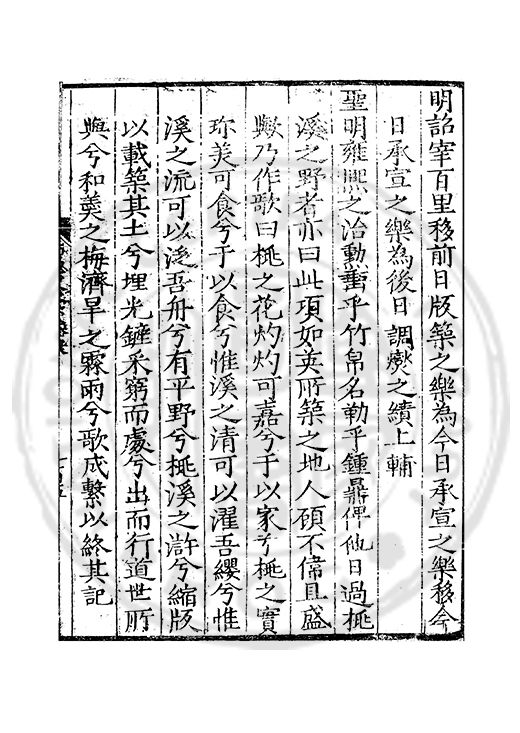 明詔宰百里移前日版築之樂為今日承宣之樂移今
日承宣之樂為後日調爕之績上輔
聖明雍熈之治勳舊乎竹帛名勒乎鍾鼎俾他日過桃
溪之野者亦曰此項如英所築之地人碩不偉且盛
歟乃作歌曰桃之花灼灼可嘉兮于以家兮桃之實
珎美可食兮于以食兮惟溪之清可以濯吾纓兮惟
溪之流可以泛吾舟兮有平野兮桃溪之滸兮縮版
以載築其土兮埋光鏟采窮而處兮出而行道世所
與兮和羮之梅濟旱之霖雨兮歌成繫以終其記